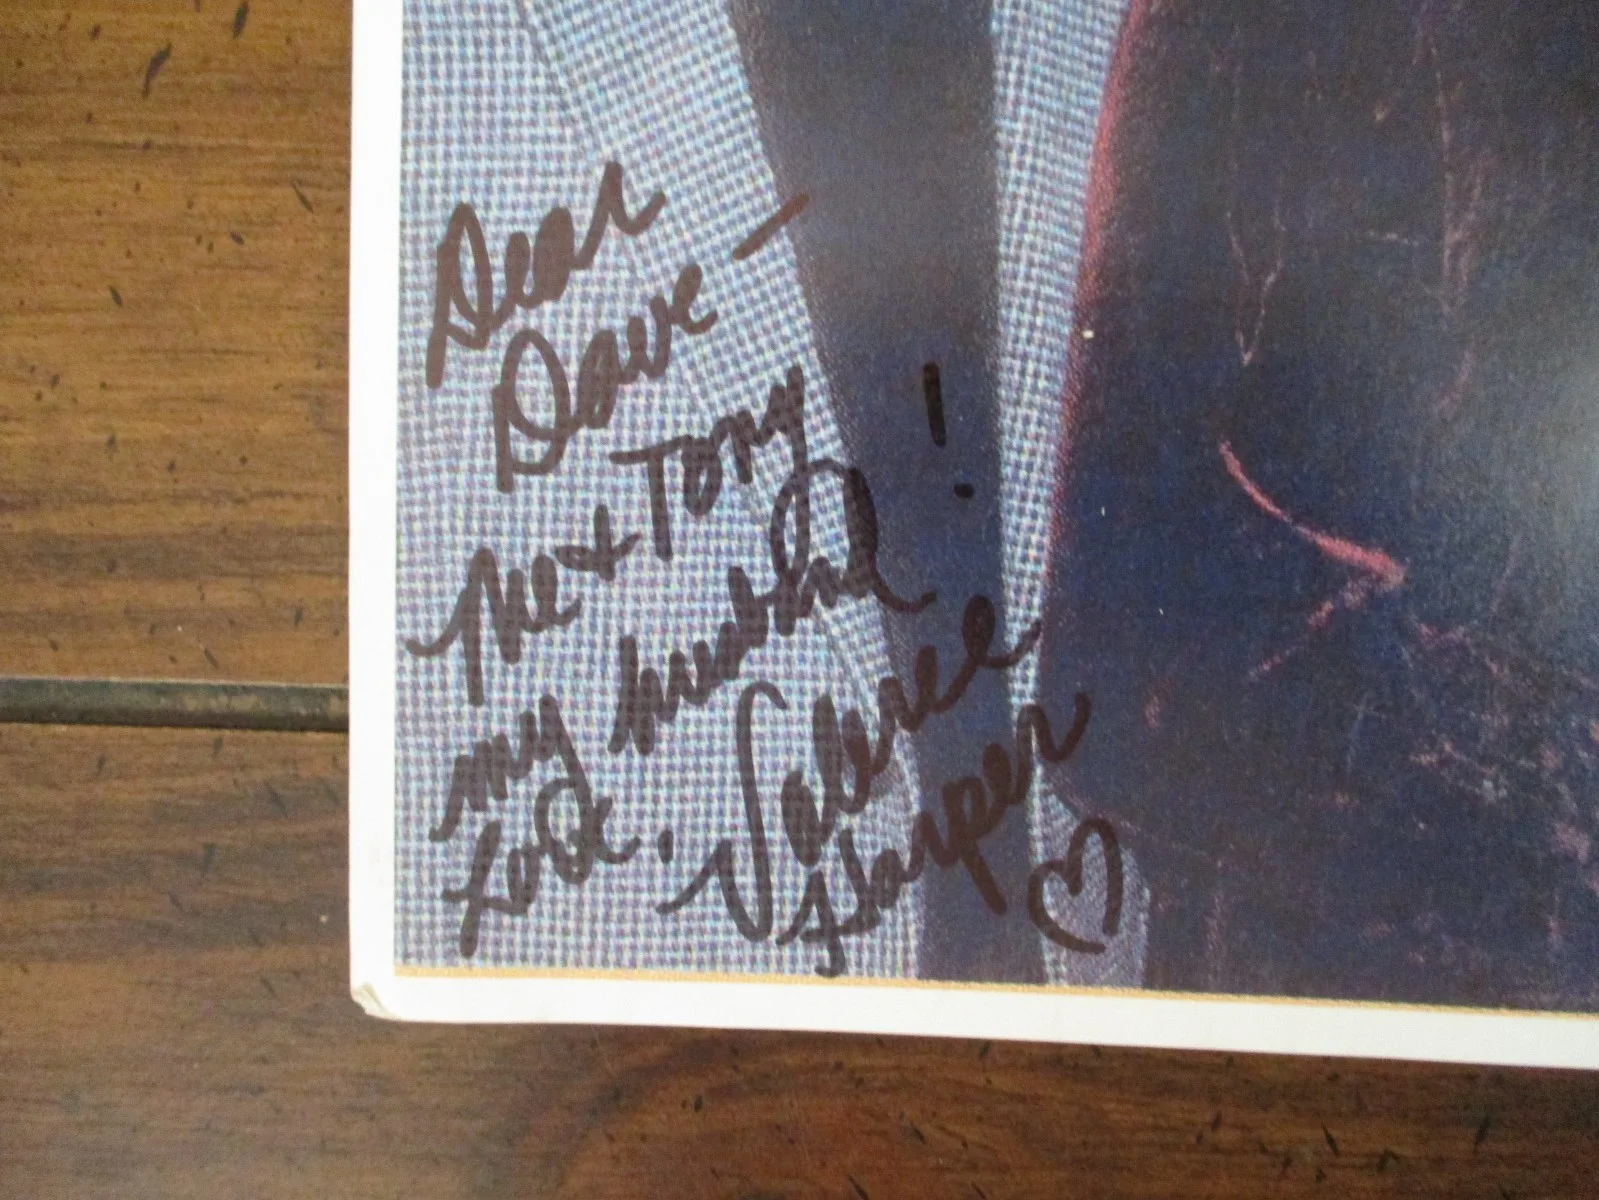 Dear
Dave –
Me & Tony
my husband!
xoox.
Valerie
Harper ♡